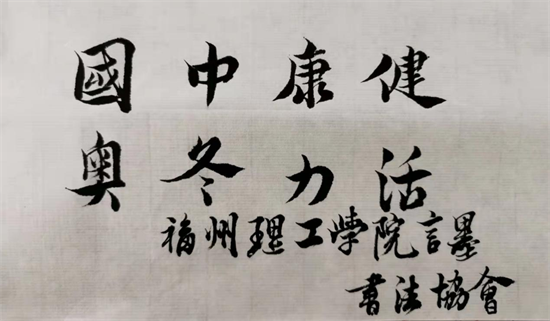 健康中國
活力冬奧
福州理工學院言墨
書法協會